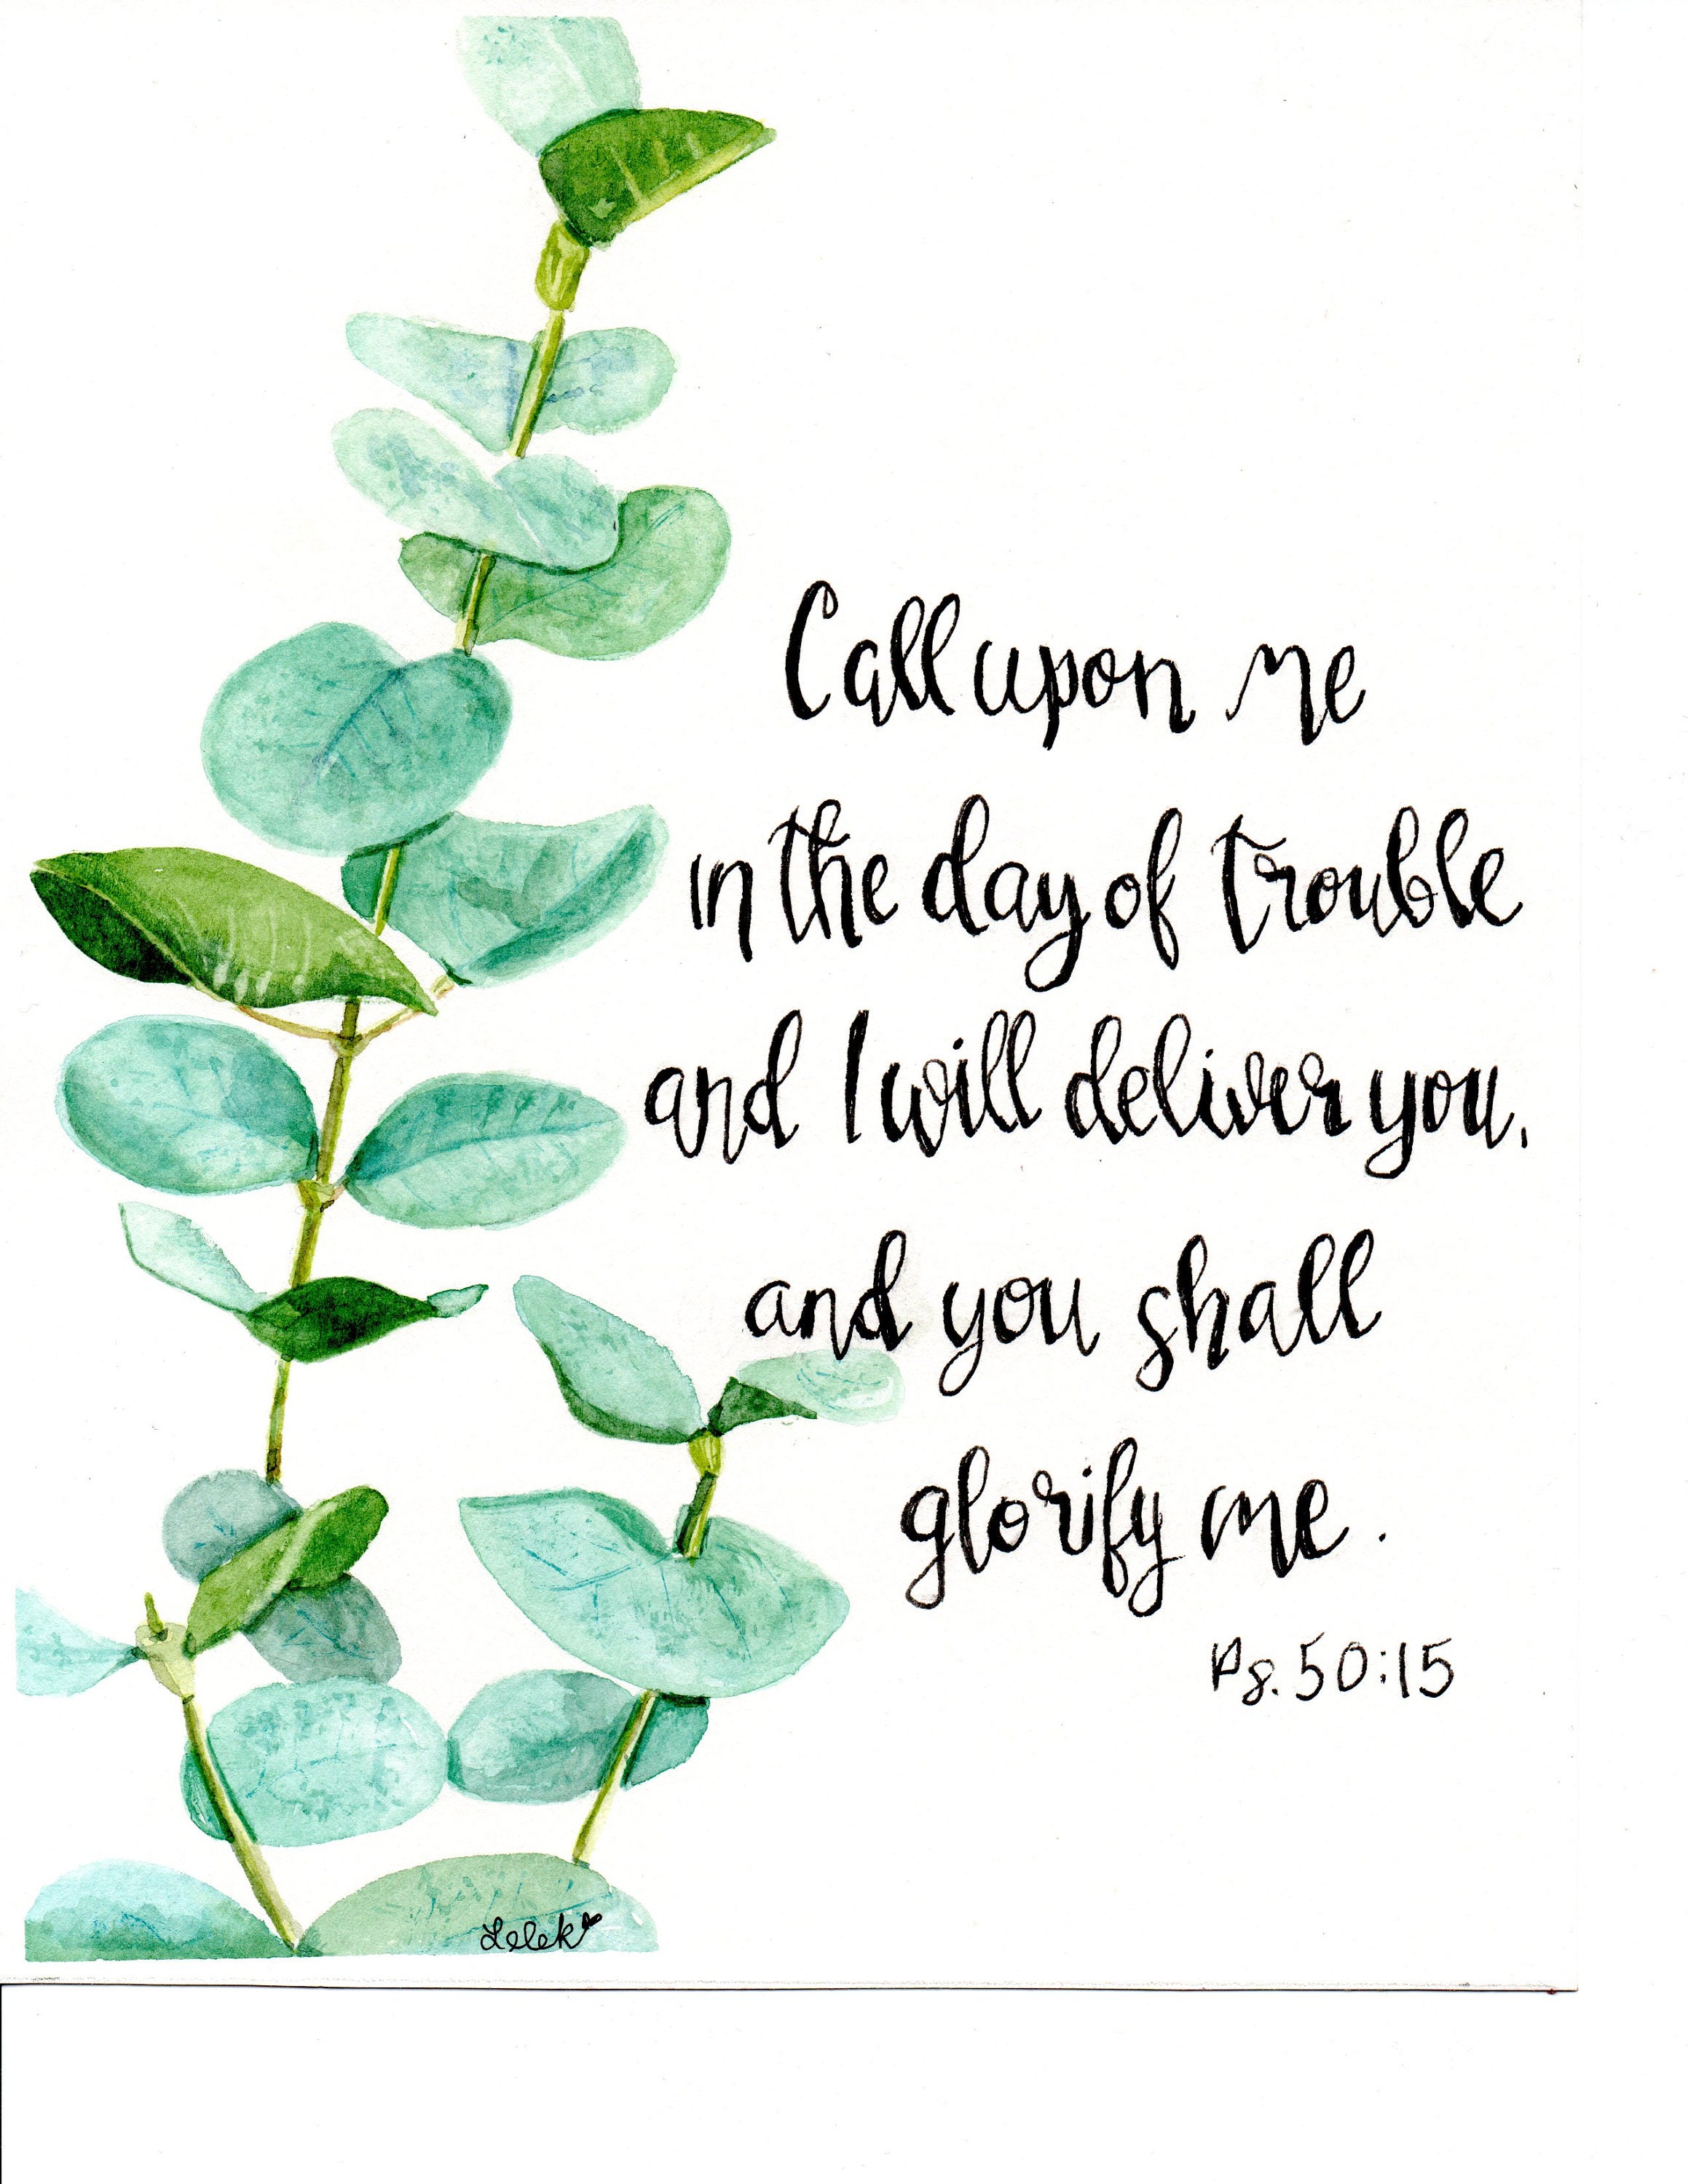 Call upon me
in the day of trouble
and I will deliver you,
and you shall
glorify me.
Ps. 50:15
Lelek